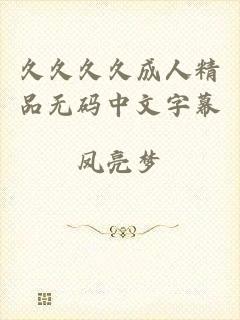 久久久久成人精
品无码中文字幕
凤亮梦